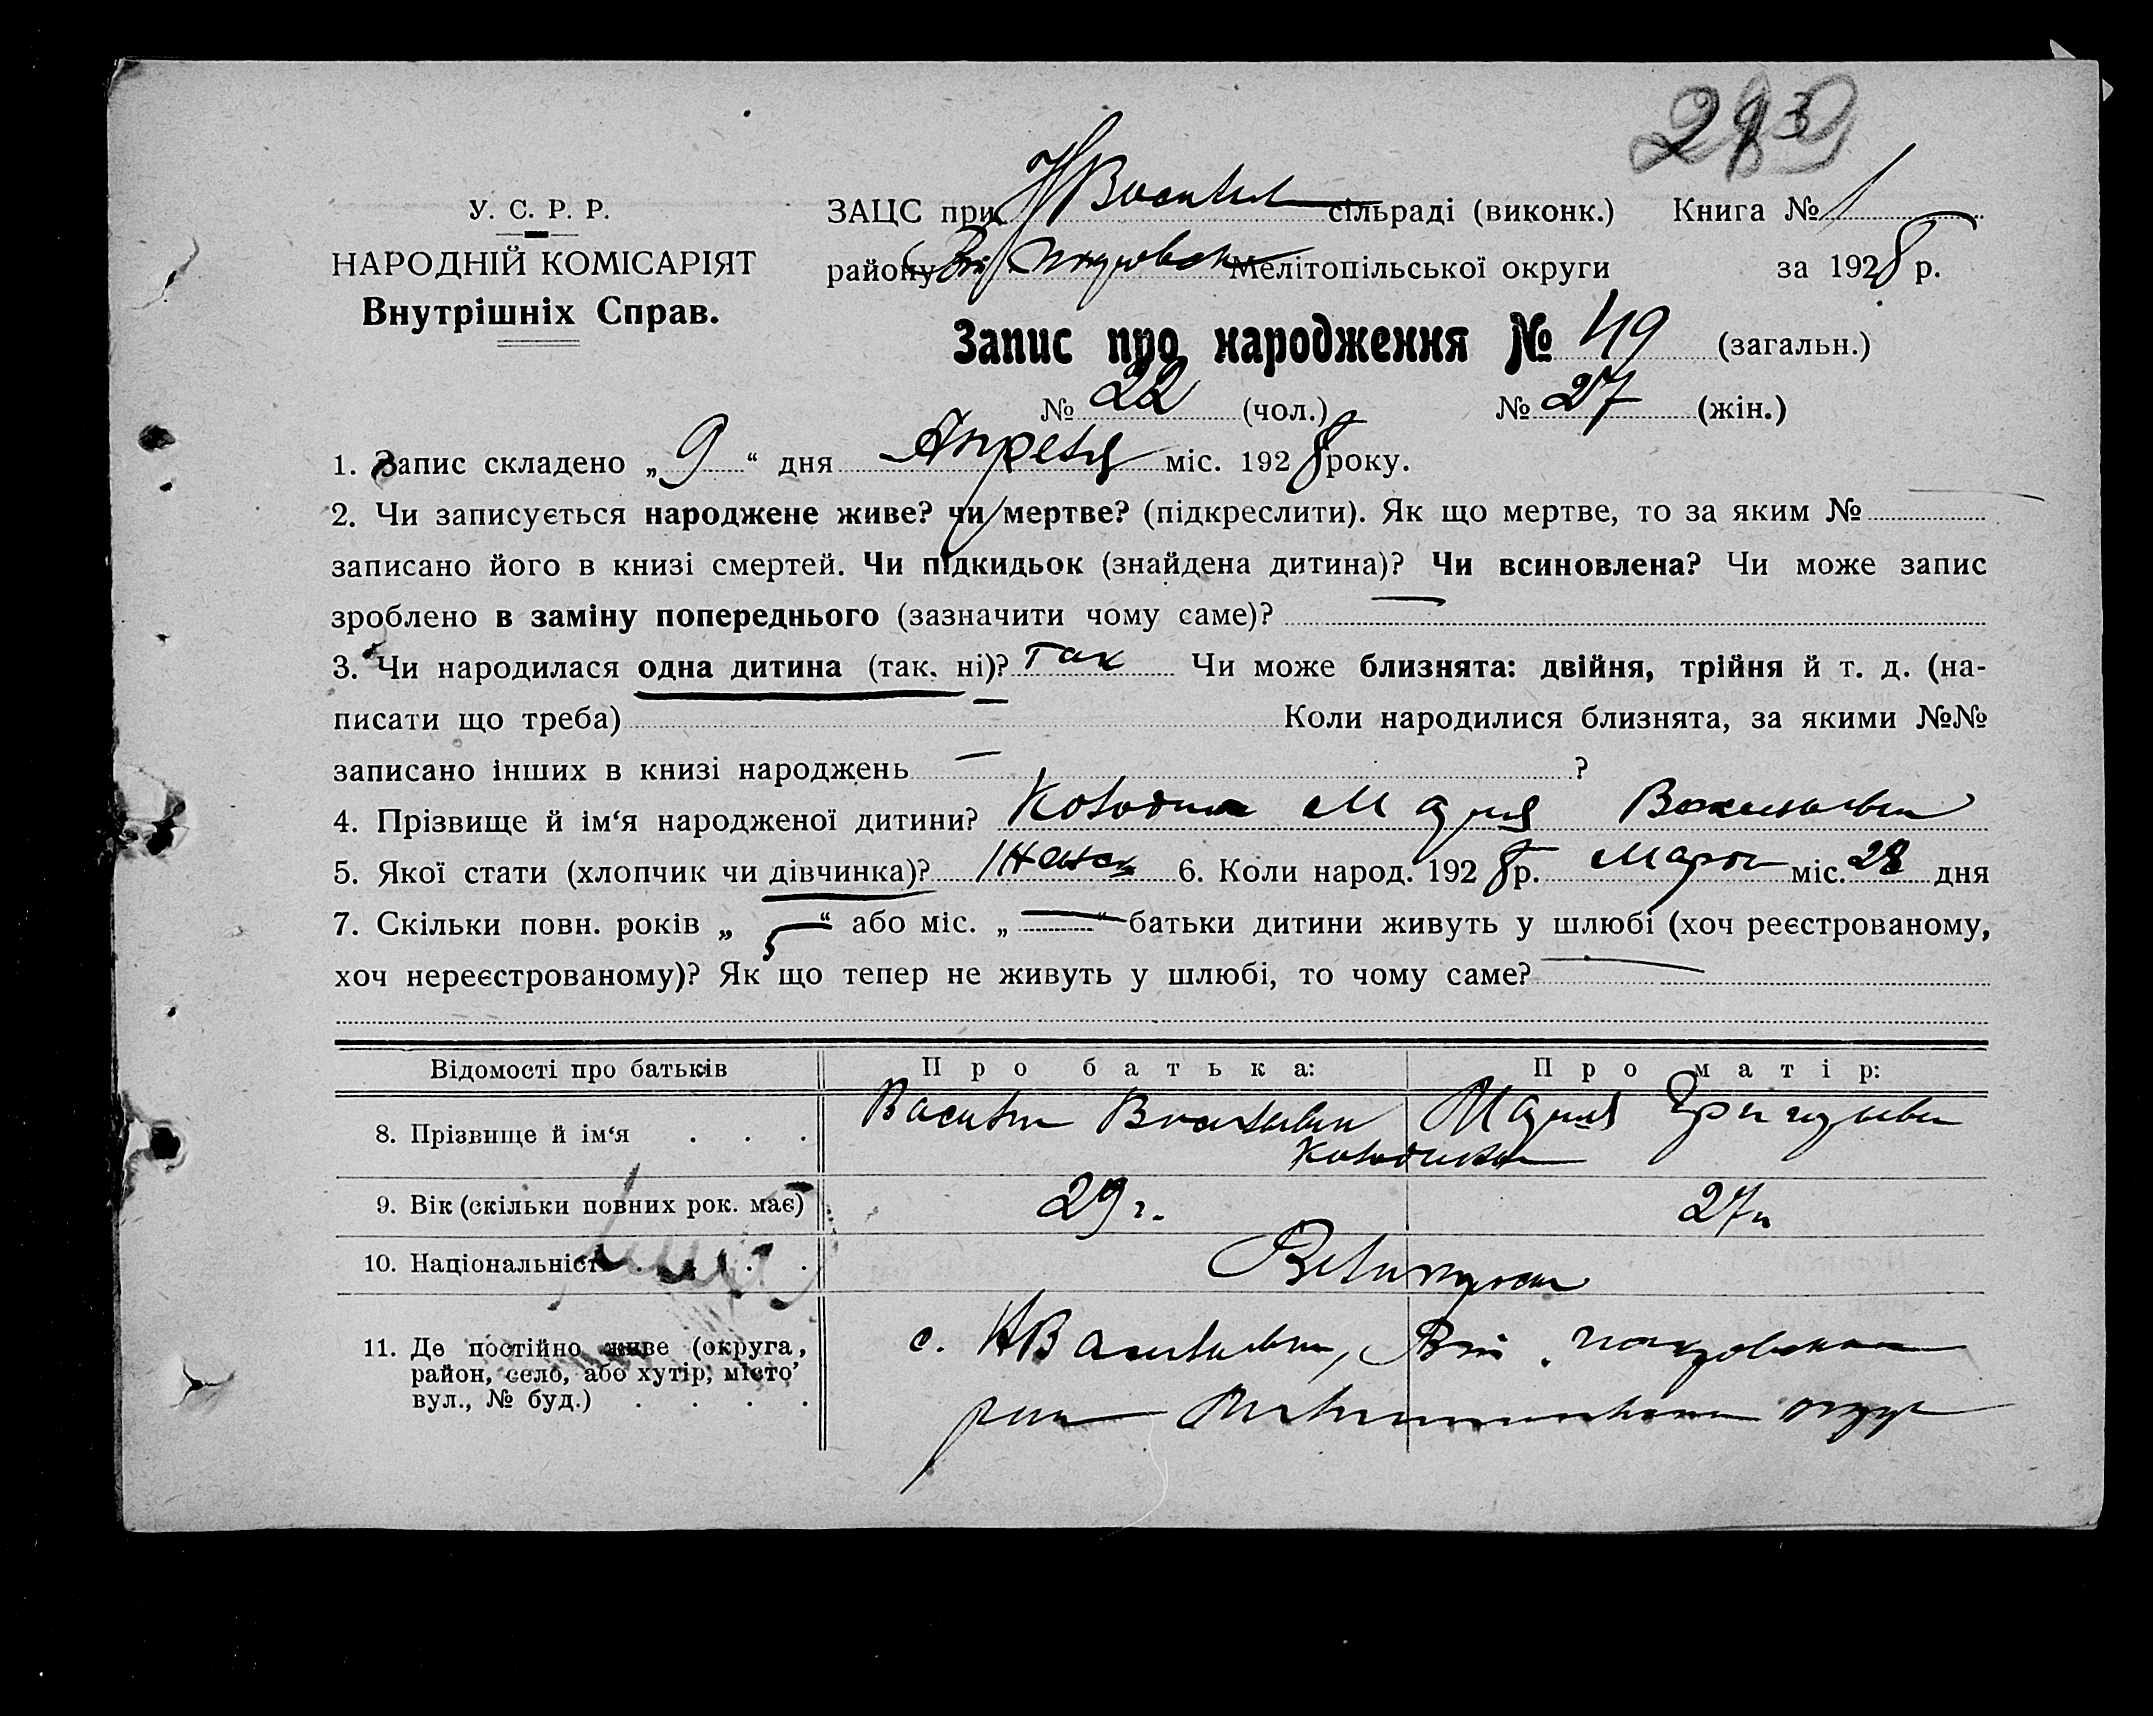 У. С. Р. Р.
НАРОДНІЙ КОМІСАРІЯТ
Внутрішніх Справ.
ЗАЦС при Н Васил сільраді (виконк.) Книга № 1
району Мелітопільської округи за 1928 р.
Запис про народження № 49 (загальн.)
№ 22 (чол.) № 27 (жін.)
1. Запис складено „ 9 “ дня Апреля міс. 1928 року.
2. Чи записується народжене живе? чи мертве? (підкреслити). Як що мертве, то за яким №
записано його в книзі смертей. Чи підкидьок (знайдена дитина)? Чи всиновлена? Чи може запис
зроблено в заміну попереднього (зазначити чому саме)? —
3. Чи народилася одна дитина (так, ні)? так Чи може близнята: двійня, трійня й т. д. (на-
писати що треба) Коли народилися близнята, за якими №№
записано інших в книзі народжень — ?
4. Прізвище й ім‘я народженої дитини? Мария
5. Якої стати (хлопчик чи дівчинка)? 6. Коли народ. 1928 р. Март міс. 28 дня
7. Скільки повн. років „ — “ або міс. „ — “ батьки дитини живуть у шлюбі (хоч реєстрованому,
хоч нереєстрованому)? Як що тепер не живуть у шлюбі, то чому саме? —
Відомості про батьків Про батька: Про матір:
8. Прізвище й ім‘я . . . Мария
9. Вік (скільки повних рок. має) 29 г. 27 г.
10. Національність . . . .
11. Де постійно живе (округа, с.
район, село, або хутір, місто’
вул., № буд.) . . . .